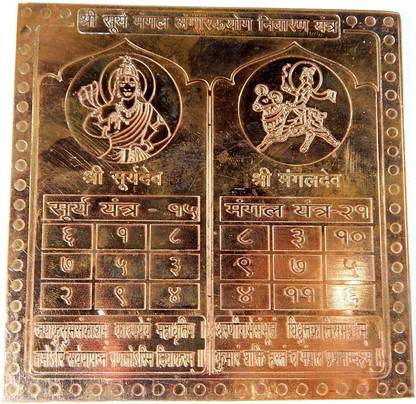 श्री सूर्य मंगल अंगारकयोग निवारण यंत्र
श्री सूर्यदेव
सूर्य यंत्र - १५
६ १ ८
७ ५ ३
२ ९ ४
काश्यपेयं महाद्युतिम ।
प्रणतोऽस्मि दिवाकरम् ॥
श्री मंगलदेव
मंगल यंत्र-२१
८ ३ १०
९ ७ ५
४ ११ ६
धरणीगर्भसंभूतं
कुमारं शक्ति हस्तं च मंगल प्रणमाम्यहम् ॥